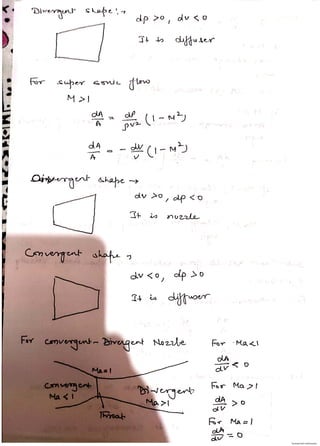 Divergent shape :→
dp > 0, dv < 0
It is diffuser
For super sonic flow
M > 1
dA/A = dp/ρv² (1 - M²)
dA/A = - dv/v (1 - M²)
Divergent shape →
dv > 0, dp < 0
It is nozzle
Convergent shape →
dv < 0, dp > 0
It is diffuser
For convergent - Divergent Nozzle
Ma = 1
Convergent
Ma < 1
Divergent
Ma > 1
Throat
For Ma < 1
dA/dV < 0
For Ma > 1
dA/dV > 0
For Ma = 1
dA/dV = 0